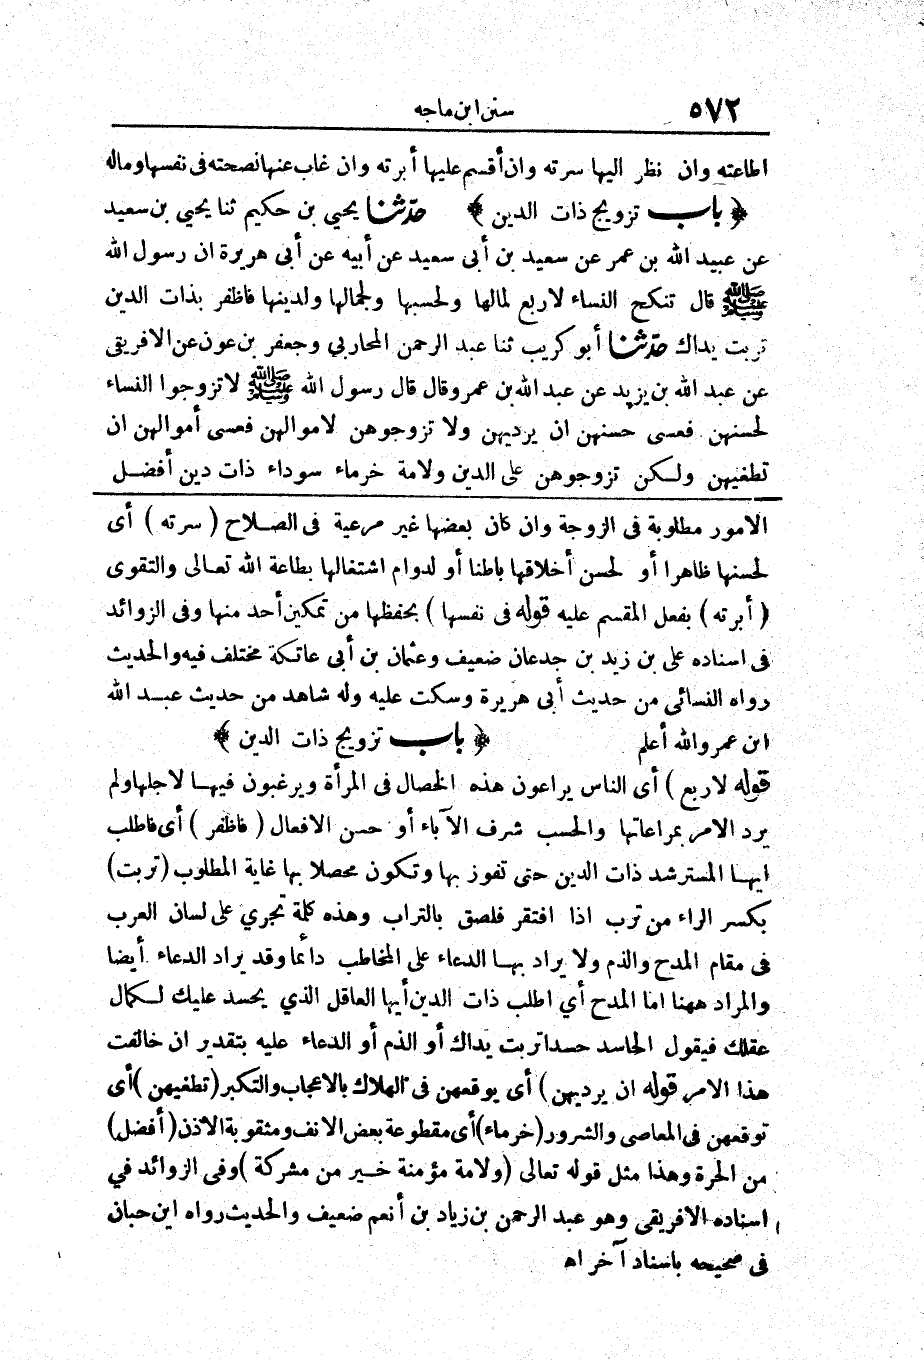 ٥٧٢ سنن ابن ماجه
اطاعته وان نظر اليها سرته وان أقسم عليها أبرته وان غاب عنها نصحته فى نفسها وماله
﴿ باب تزويج ذات الدين ﴾ حدّثنا يحيي بن حكيم ثنا يحيي بن سعيد
عن عبيد الله بن عمر عن سعيد بن أبى سعيد عن أبيه عن أبى هريرة ان رسول الله
ﷺ قال تنكح النساء لاربع لمالها ولحسبها ولجمالها ولدينها فاظفر بذات الدين
تربت يداك حدّثنا أبو كريب ثنا عبد الرحمن المحاربي وجعفر بن عون عن الافريقى
عن عبد الله بن يزيد عن عبد الله بن عمرو قال قال رسول الله ﷺ لا تزوجوا النساء
لحسنهن فعسى حسنهن ان يرديهن ولا تزوجوهن لاموالهن فعسى أموالهن ان
تطغيهن ولكن تزوجوهن على الدين ولامة خرماء سوداء ذات دين أفضل
الامور مطلوبة فى الزوجة وان كان بعضها غير مرعية فى الصلاح ( سرته ) أى
لحسنها ظاهرا أو لحسن أخلاقها باطنا أو لدوام اشتغالها بطاعة الله تعالى والتقوى
( أبرته ) بفعل المقسم عليه قوله فى نفسها ) بحفظها من تمكين أحد منها وفى الزوائد
فى اسناده على بن زيد بن جدعان ضعيف وعثمان بن أبي عاتكة مختلف فيه والحديث
رواه النسائى من حديث أبى هريرة وسكت عليه وله شاهد من حديث عبد الله
ابن عمر والله أعلم ﴿ باب تزويج ذات الدين ﴾
قوله لاربع ) أى الناس يراعون هذه الخصال فى المرأة ويرغبون فيها لاجلها ولم
يرد الامر بمراعاتها والحسب شرف الآباء أو حسن الافعال ( فاظفر ) أى فاطلب
ايها المسترشد ذات الدين حتى تفوز بها وتكون محصلا بها غاية المطلوب (تربت)
بكسر الراء من ترب اذا افتقر فلصق بالتراب وهذه كلمة تجري على لسان العرب
فى مقام المدح والذم ولا يراد بها الدعاء على المخاطب دائما وقد يراد الدعاء أيضا
والمراد ههنا اما المدح أي اطلب ذات الدين أيها العاقل الذي يحسد عليك لكمال
عقلك فيقول الحاسد حسدا تربت يداك أو الذم أو الدعاء عليه بتقدير ان خالفت
هذا الامر قوله ان يرديهن ) أى يوقعهن فى الهلاك بالاعجاب والتكبر (تطغيهن ) أى
توقعهن فى المعاصى والشرور (خرماء) أى مقطوعة بعض الانف ومثقوبة الاذن (أفضل)
من الحرة وهذا مثل قوله تعالى (ولامة مؤمنة خير من مشركة ) وفى الزوائد في
اسناده الافريقى وهو عبد الرحمن بن زياد بن أنعم ضعيف والحديث رواه ابن حبان
فى صحيحه باسناد آخر اه